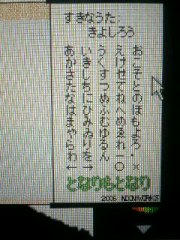 すきなうた
きよしろう
おこそとのほもよろ・×
えけせてねへめゑれー○
うくすつぬふむゆるん
いきしちにひみゐりを→
あかさたなはまやらわ←
となりもとなり
2006